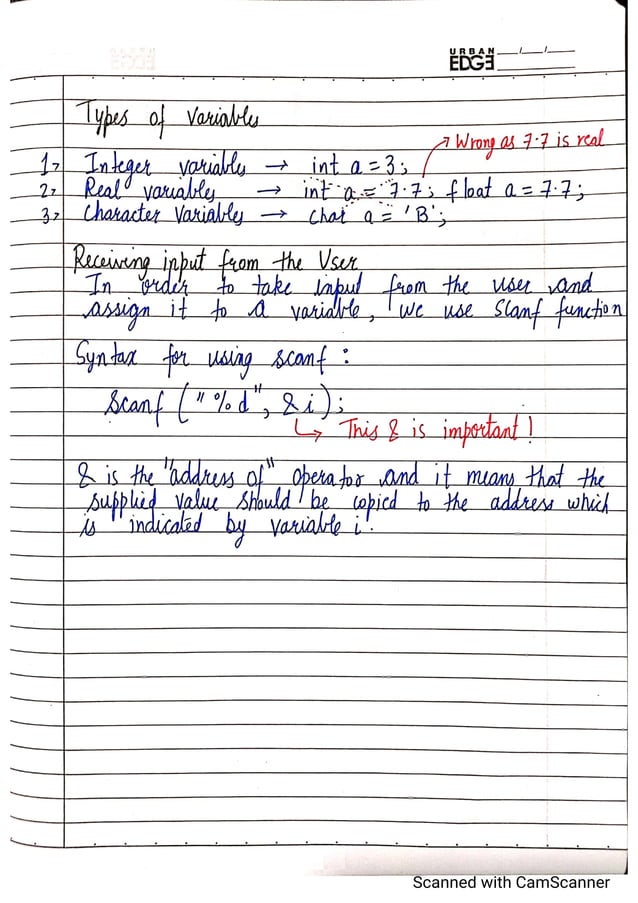 URBAN
EDGE
Types of Variables
Wrong as 7.7 is real
1> Integer variables → int a = 3;
2> Real variables → int a = 7.7; float a = 7.7;
3> Character Variables → char a = 'B';
Receiving input from the User
In order to take input from the user and
assign it to a variable, we use scanf function
Syntax for using scanf :
Scanf ("%d", &i);
↳ This & is important!
& is the "address of" operator and it means that the
supplied value should be copied to the address which
is indicated by variable i.
Scanned with CamScanner